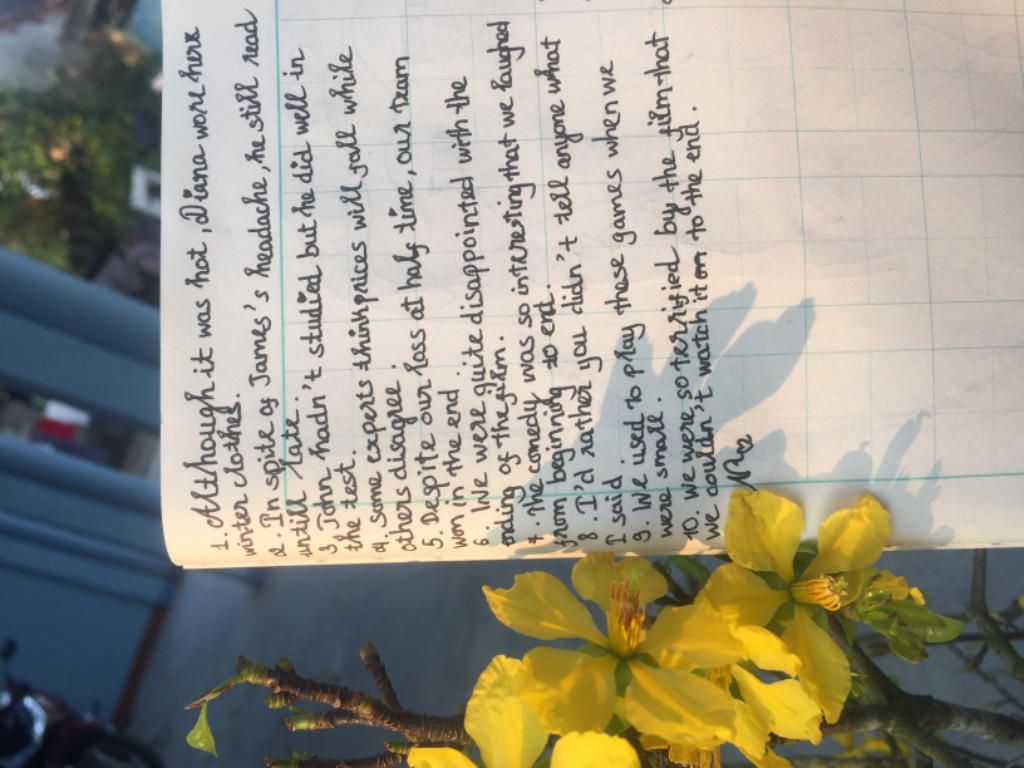 1. Although it was hot, Diana wore here
winter clothes.
2. In spite of James's headache, he still read
untill late.
3 John hadn't studied but he did well in
the test.
4. some experts think prices will fall while
others disagree.
5. Despite our loss at half time, our team
won in the end.
6. We were quite disappointed with the
ending of the film.
7. The comedy was so interesting that we laughed
from beginning to end.
8. I'd rather you didn't tell anyone what
I said
9. We used to play these games when we
were small.
10. We were so terrified by the film that
we couldn't watch it on to the end.